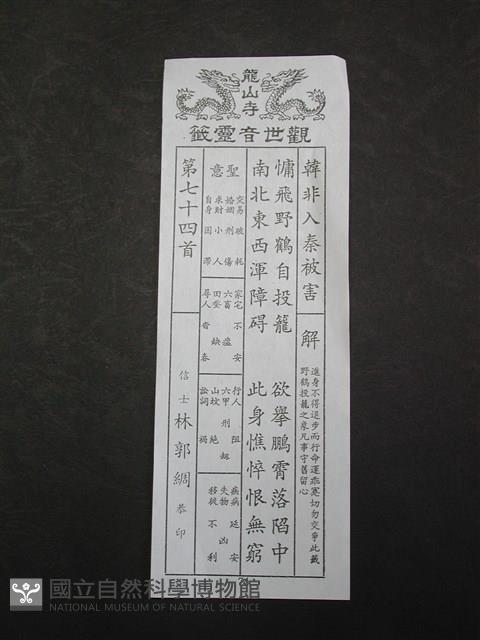 龍山寺
觀世音靈籤
韓非入秦被害
解
進身不得退步而行命運乖蹇切勿交爭此籤
野鶴投籠之象凡事守舊留心
慵飛野鶴自投籠 欲舉鵬霄落陷中
南北東西渾障碍 此身憔悴恨無窮
聖意
交易破耗
婚姻刑傷
求財小人
自身困滯
家宅不安
六畜瘟
田蚕缺
尋人音杳
行人阻
六甲刑
山坟絕
訟詞禍
疾病延安
失物凶
移徙不利
第七十四首
信士林郭綢恭印
國立自然科學博物館
NATIONAL MUSEUM OF NATURAL SCIENCE